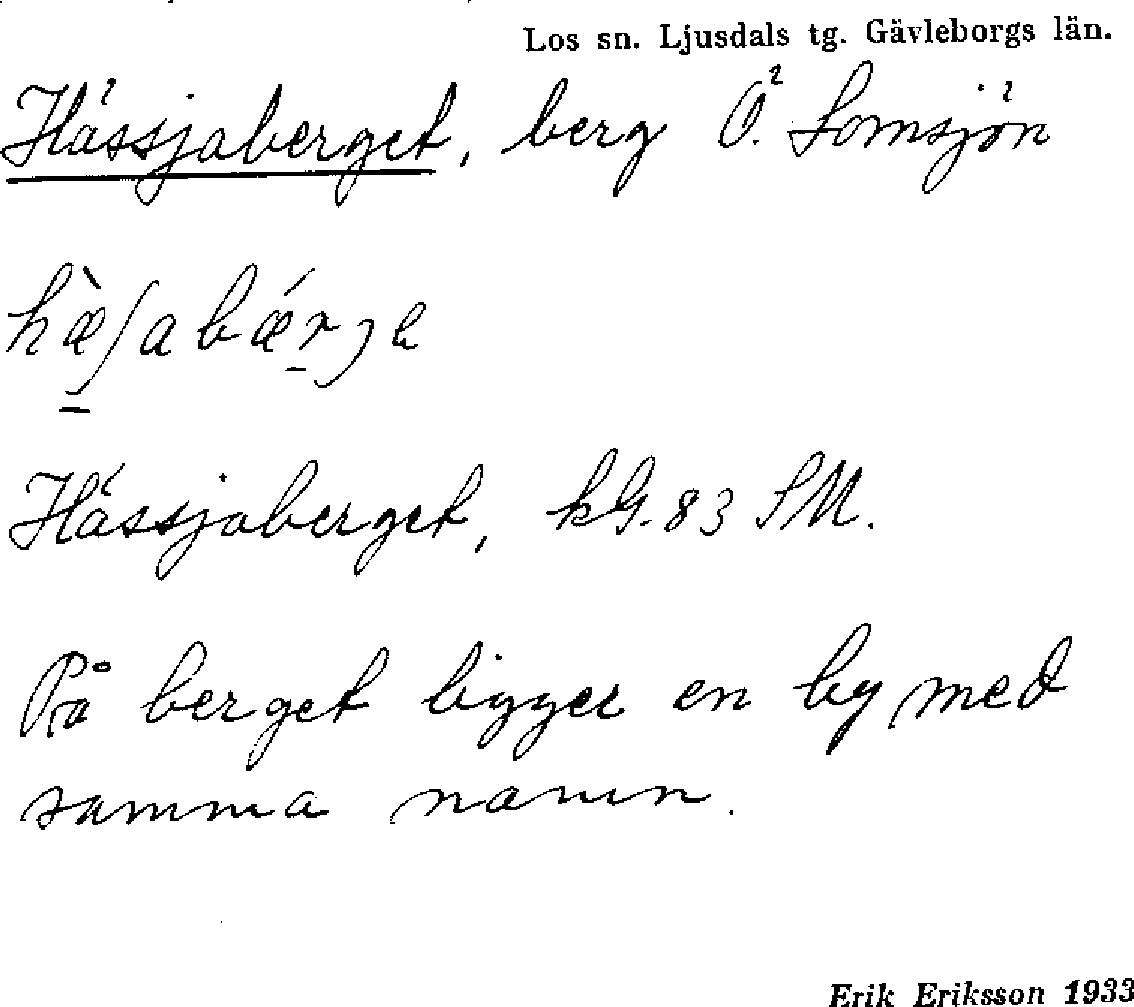 Los sn. Ljusdals tg. Gävleborgs län.
Hässjaberget, berg Ö. Lomsjön
hæ̀ʃabǽrȷe
Hässjaberget, kG. 83 SM.
På berget ligger en by med
samma namn.
Erik Eriksson 1933